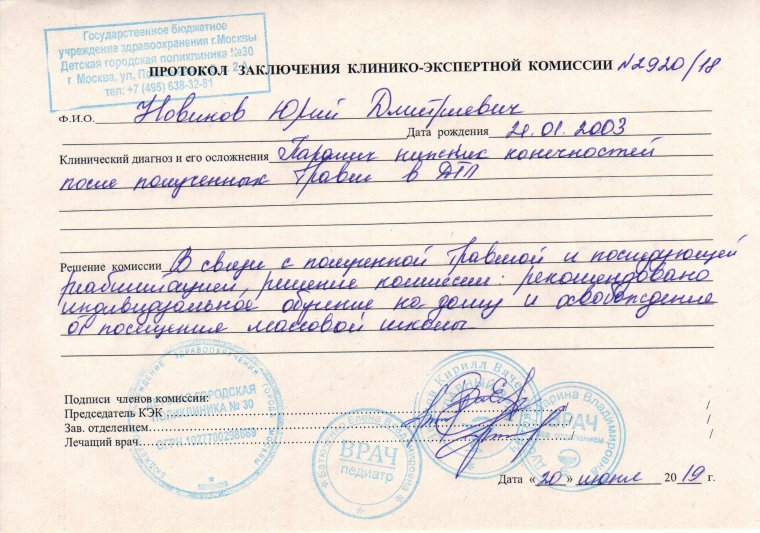 Государственное бюджетное
учреждение здравоохранения г.Москвы
Детская городская поликлиника №30
г Москва, ул.
тел: +7 (495) 638-32-91
ПРОТОКОЛ ЗАКЛЮЧЕНИЯ КЛИНИКО-ЭКСПЕРТНОЙ КОМИССИИ №2920/18
Ф.И.О. Новиков Юрий Дмитриевич
Дата рождения 21.01.2003
Клинический диагноз и его осложнения Паралич нижних конечностей
после полученных травм в ДТП
Решение комиссии В связи с полученной травмой и последующей
реабилитацией, решение комиссии: рекомендовано
индивидуальное обучение на дому и освобождение
от посещение массовой школы
ЗДРАВООХРАНЕНИЯ ГОРОДА МОСКВЫ
ГОРОДСКАЯ
ПОЛИКЛИНИКА № 30
ОГРН
Подписи членов комиссии:
Председатель КЭК /
Зав. отделением /
Лечащий врач /
Елена Владимировна
ВРАЧ
педиатр
Кирилл Вяче
Владимировна
ВРАЧ
отделением
Дата «20» июля 2019 г.